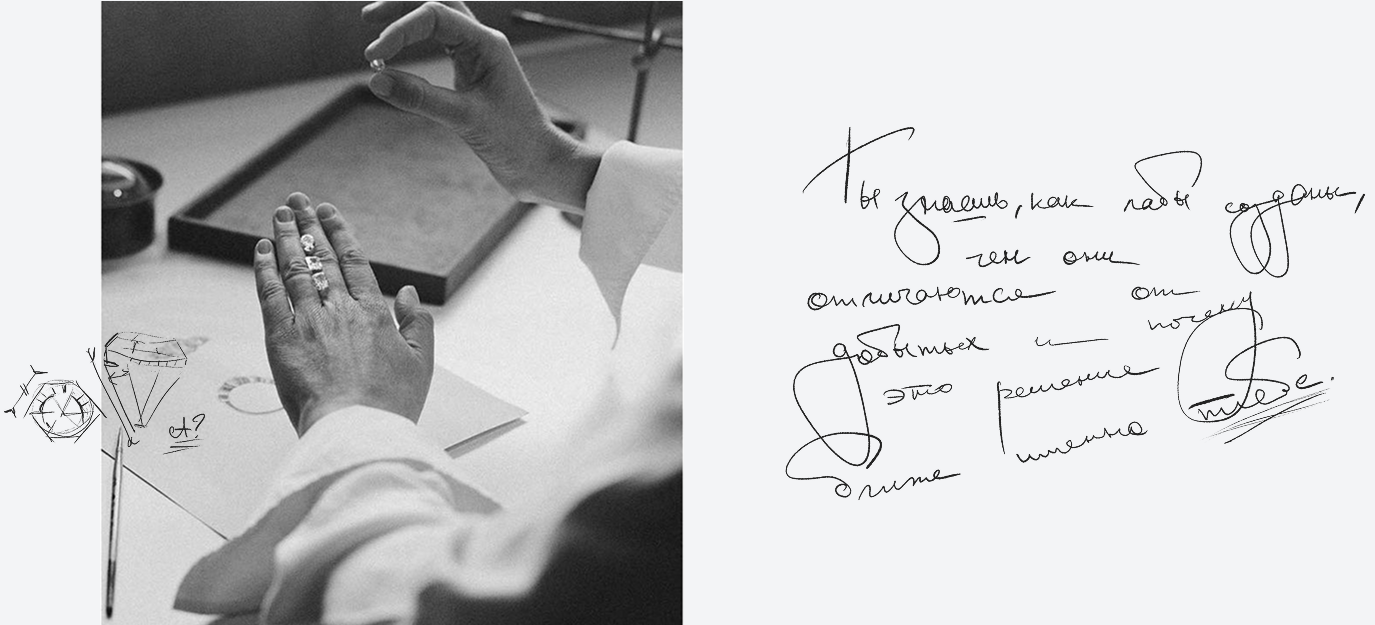 A?
Ты знаешь, как лабы созданы,
чем они
отличаются от
добытых и почему
это решение
ближе именно тебе.